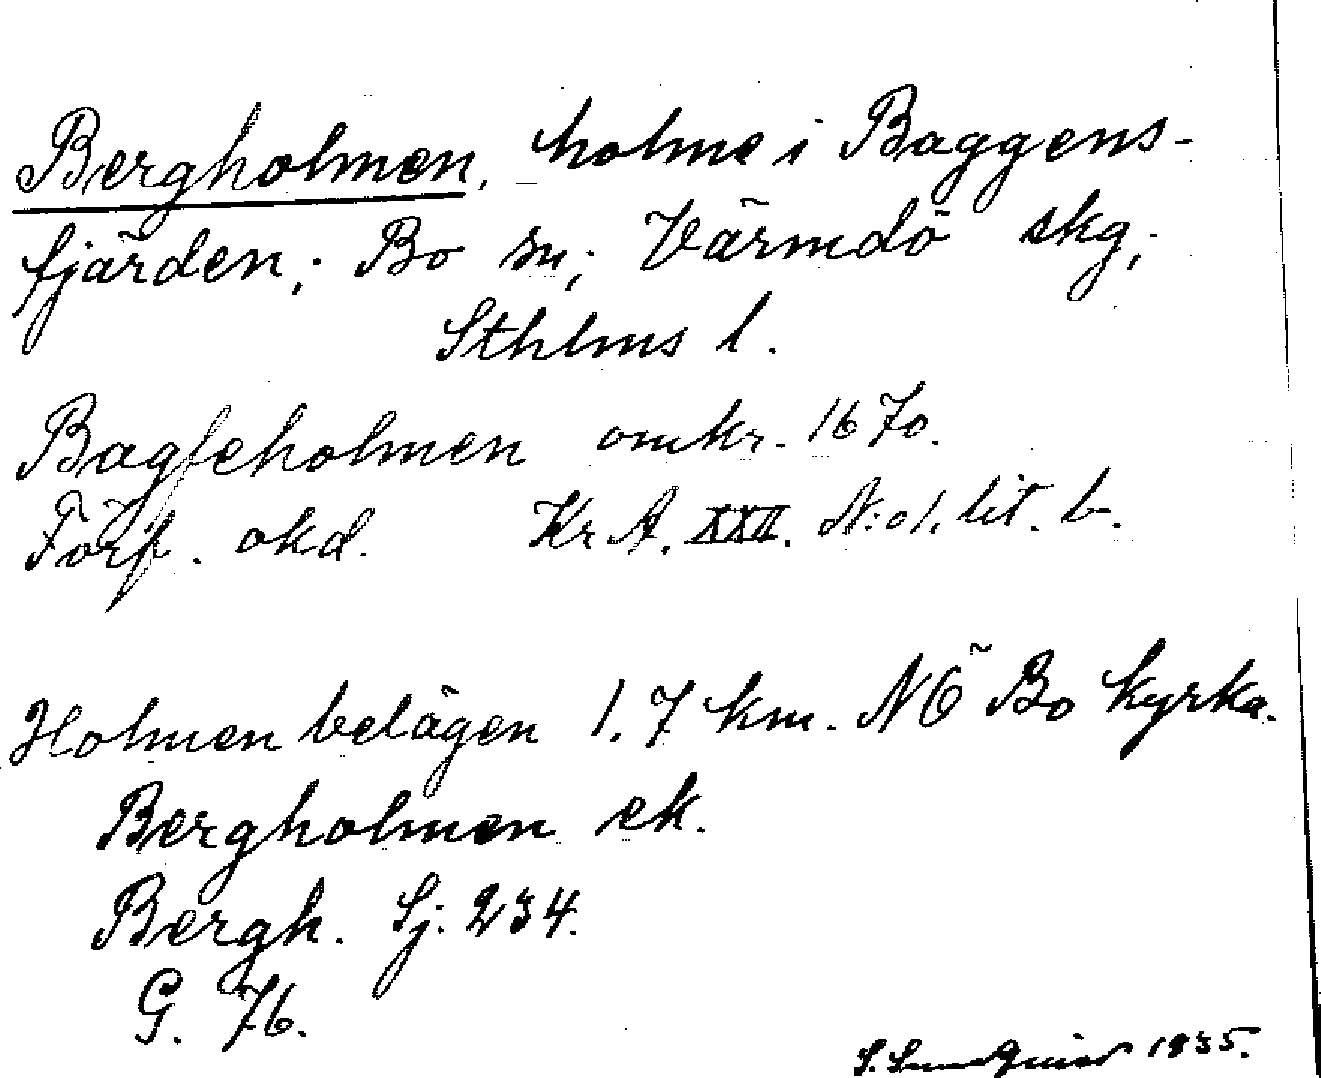 Bergholmen, holme i Baggens-
fjärden; Bo sn; Värmdö skg;
Sthlms l.
Bagfeholmen omkr. 1670.
Förf. okd. Kr. A. XXII. N:o 1. lit. b.
Holmen belägen 1.7 km. NÖ Bo kyrka.
Bergholmen ek.
Bergh. Sj. 234.
G. 76.
S. Lundquist 1935.